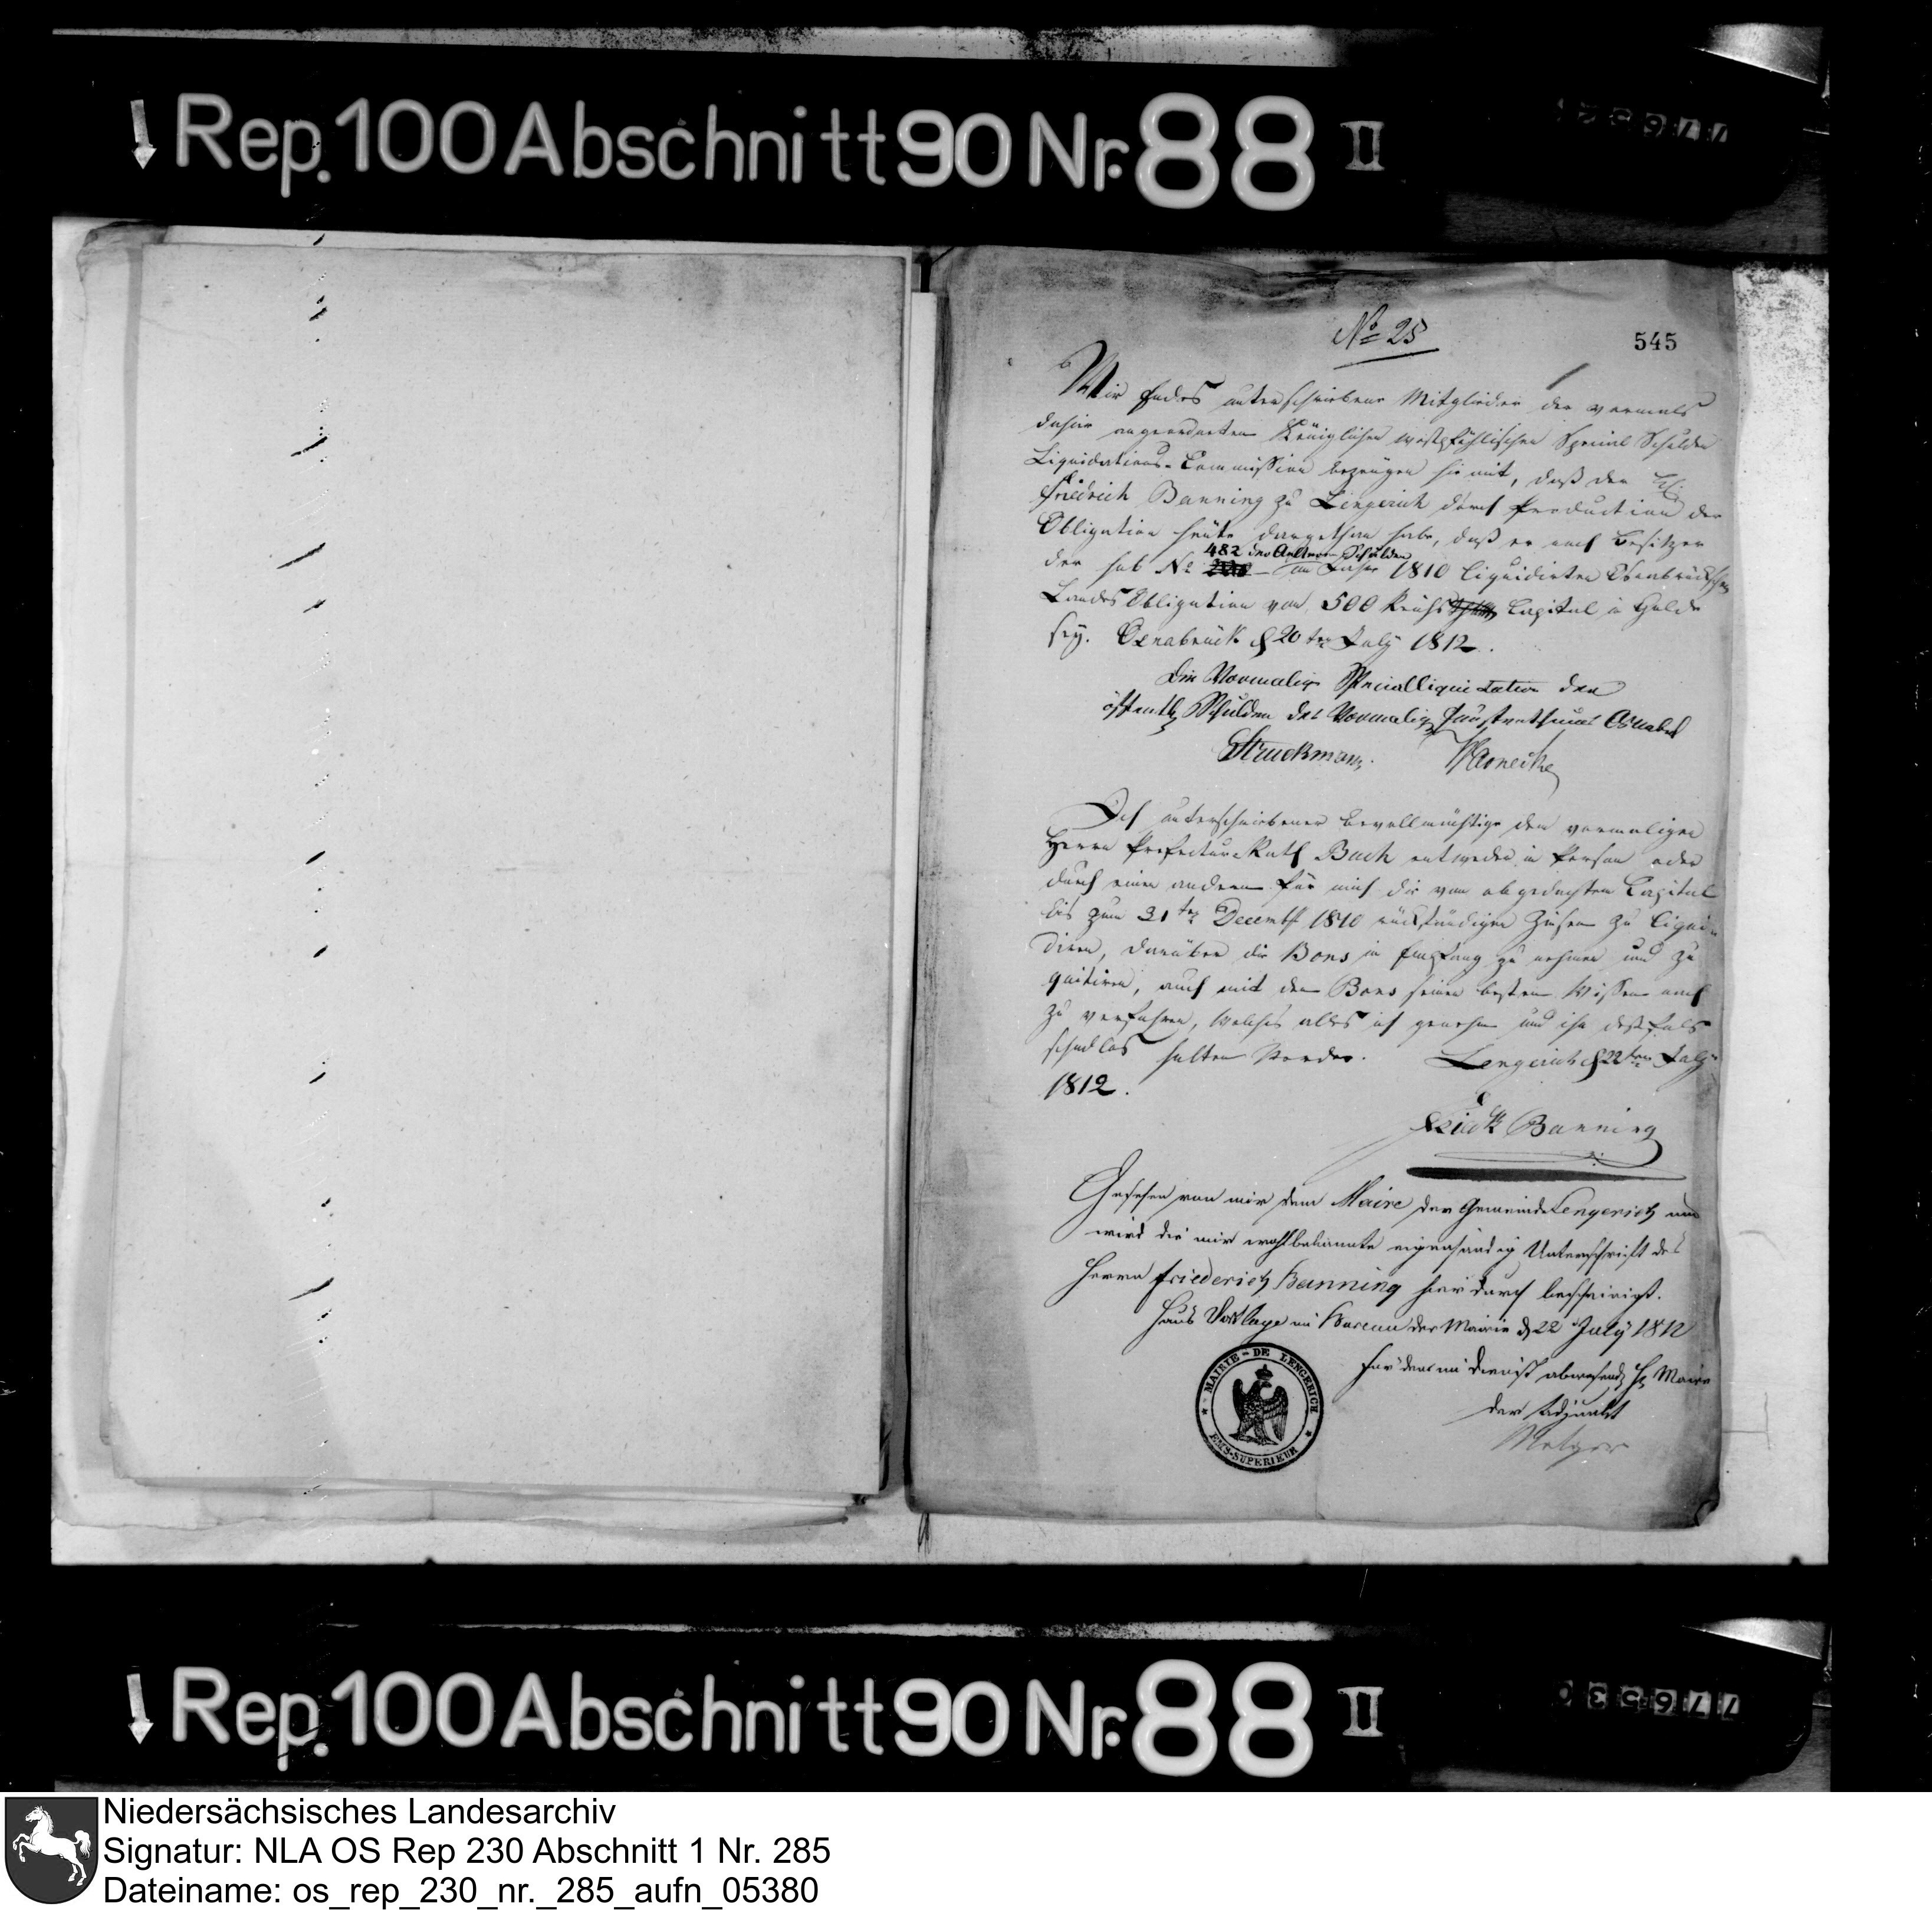 Rep. 100 Abschnitt 90 Nr. 88 II
No 25
545
Wir Endes unterschriebene Mitglieder der vormals
dahier angeordneten Königlichen westphälischen Special Schulden
Liquidations-Commission bezeugen hiemit, daß der
Friedrich Banning zu Lengerich durch Production der
Obligation heute dargethan habe, daß er noch Besitzer
482 der Aelteren Schulden
der sub No im Jahr 1810 liquidirten Osnabrückschen
Landes Obligation von 500 Capital in Golde
sey. Osnabrück d 20ten July 1812.
Die Vormalige Specialliquidation der
öffentl Schulden des Vormalig Fürstenthums Osnabrück
Struckmann. Warnecke
Ich unterschriebener bevollmächtige den vormaligen
Herrn Prefectur-Rath Buch entweder in Person oder
durch einen andern für mich die von obgedachten Capital
bis zum 31ten Decembr 1810 rückständigen Zinsen zu liqui-
diren, darüber die Bons in Empfang zu nehmen und zu
quitiren, auch mit den Bons seinen besten Wissen nach
zu verfahren, welches alles ich genehm und ihn desfals
schadlos halten werde. Lengerich d 22ten July
1812.
Friedr Banning
Gesehen von mir dem Maire der Gemeinde Lengerich und
wird die mir wohlbekannte eigenhändig Unterschrift des
Herrn Friederich Banning hierdurch bescheinigt.
Haus Vortlage im Bureau der Mairie d 22 July 1812
Für den im Dienst abwesend H Maire
der Adjunkt
Metger
MAIRIE - DE LENGERICH
EMS-SUPERIEUR
Rep. 100 Abschnitt 90 Nr. 88 II
Niedersächsisches Landesarchiv
Signatur: NLA OS Rep 230 Abschnitt 1 Nr. 285
Dateiname: os_rep_230_nr._285_aufn_05380